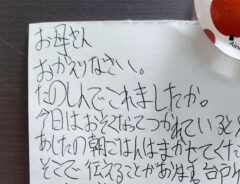 お母さん
おかえりなさい。
たのしんでこれましたか。
今日はおそくなってつかれていると
あしたの朝ごはんはまかせてくだ
そこで伝えることがあります。台所